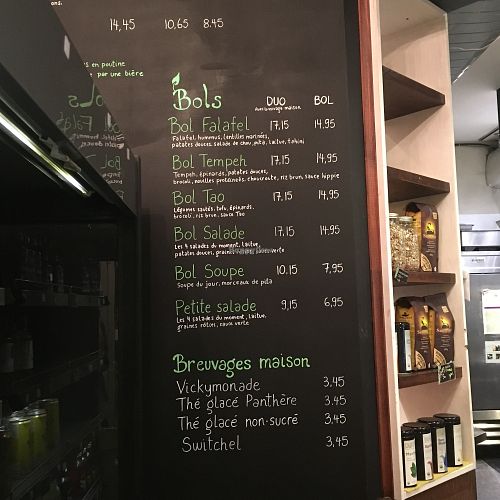 ons.
14,45 10,65 8.45
s en poutine
par une bière
Bols
DUO BOL
Avec breuvage maison
Bol Falafel 17,15 14,95
Falafel, hummus, lentilles marinées,
patates douces, salade de chou, pita, laitue, tahini
Bol Tempeh 17,15 14,95
Tempeh, épinards, patates douces,
brocoli, nouilles protéinées, choucroute, riz brun, sauce hippie
Bol Tao 17,15 14,95
Légumes sautés, tofu, épinards,
brocoli, riz brun, sauce Tao
Bol Salade 17,15 14,95
Les 4 salades du moment, laitue,
patates douces, graines verte
Bol Soupe 10,15 7,95
Soupe du jour, morceaux de pita
Petite salade 9,15 6,95
Les 4 salades du moment, laitue,
graines rôties, sauce verte
Breuvages maison
Vickymonade 3,45
Thé glacé Panthère 3.45
Thé glacé non-sucré 3.45
Switchel 3,45